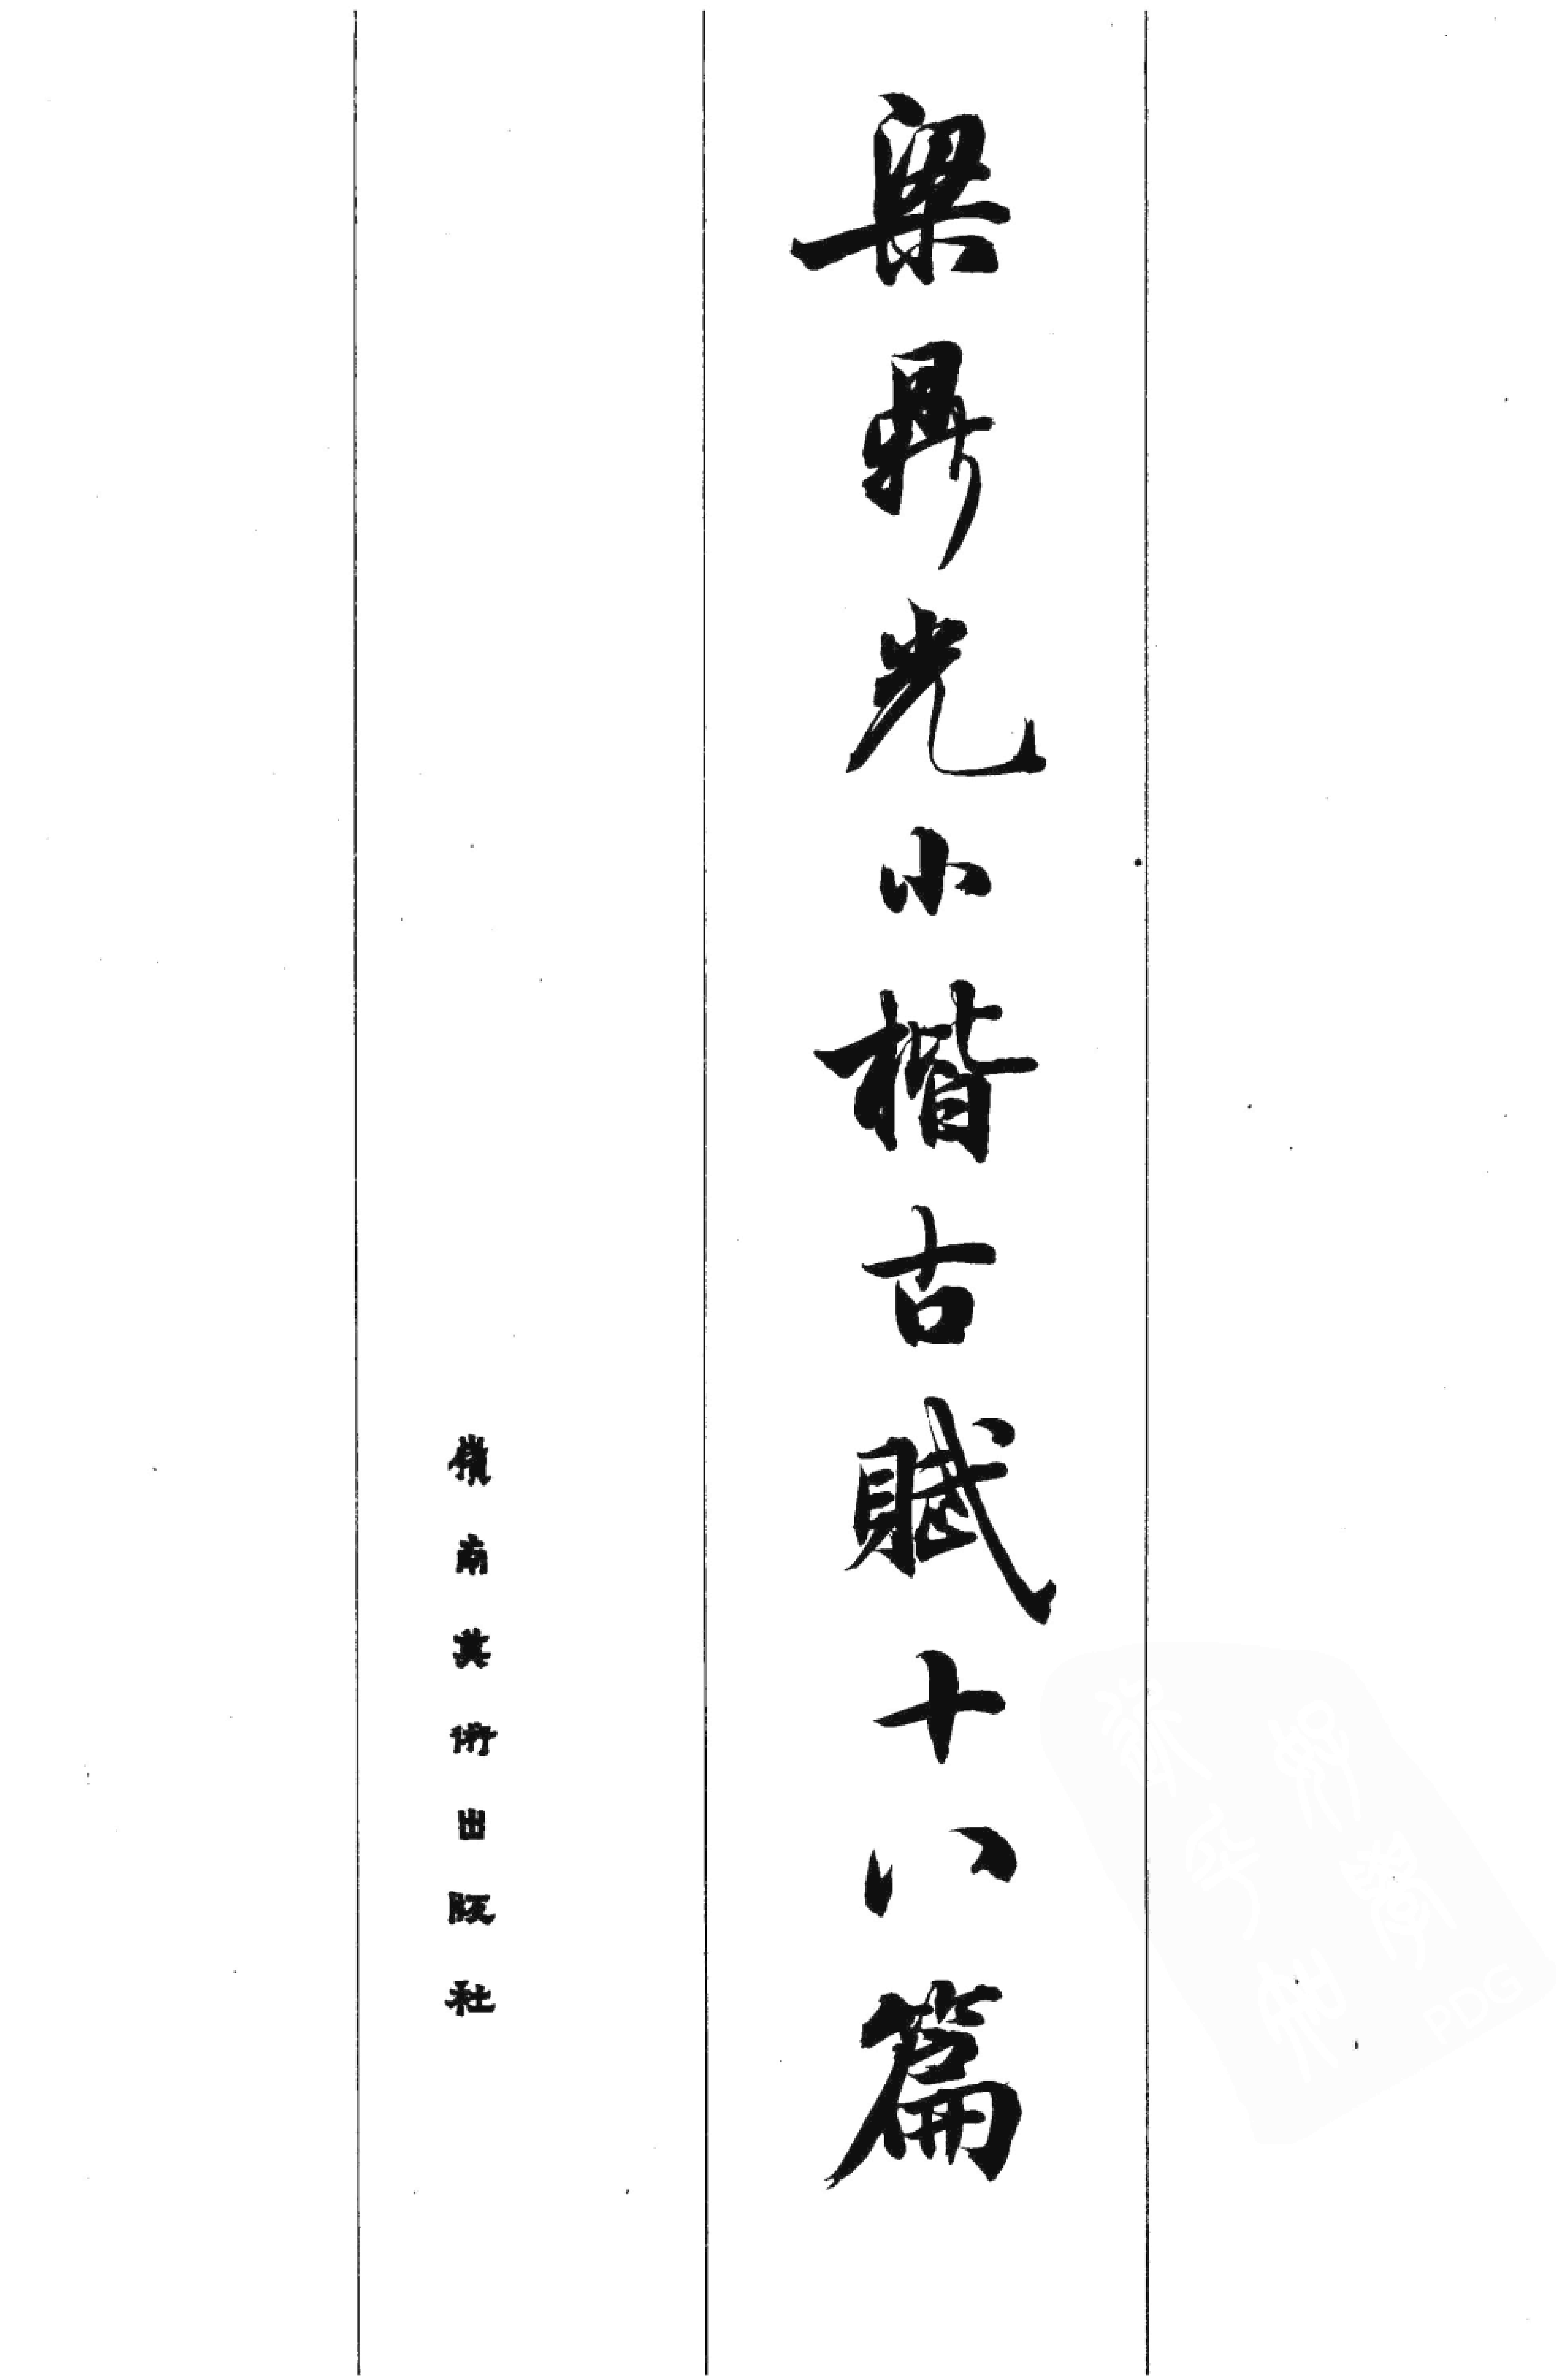 梁鼎光小楷古賦十八篇
嶺南美術出版社
PDG